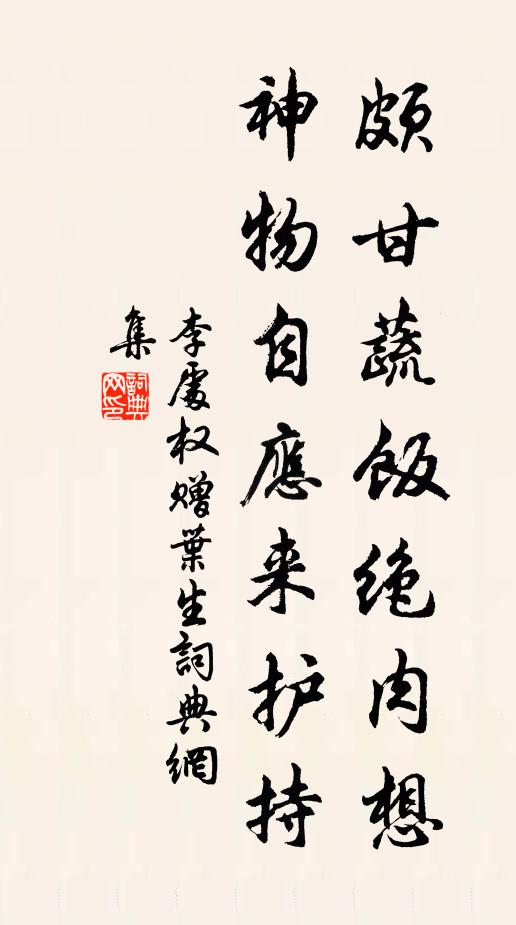 頗甘蔬飯絶肉想
神物自應来护持
李處权赠葉生詞典網
集
詞典网印